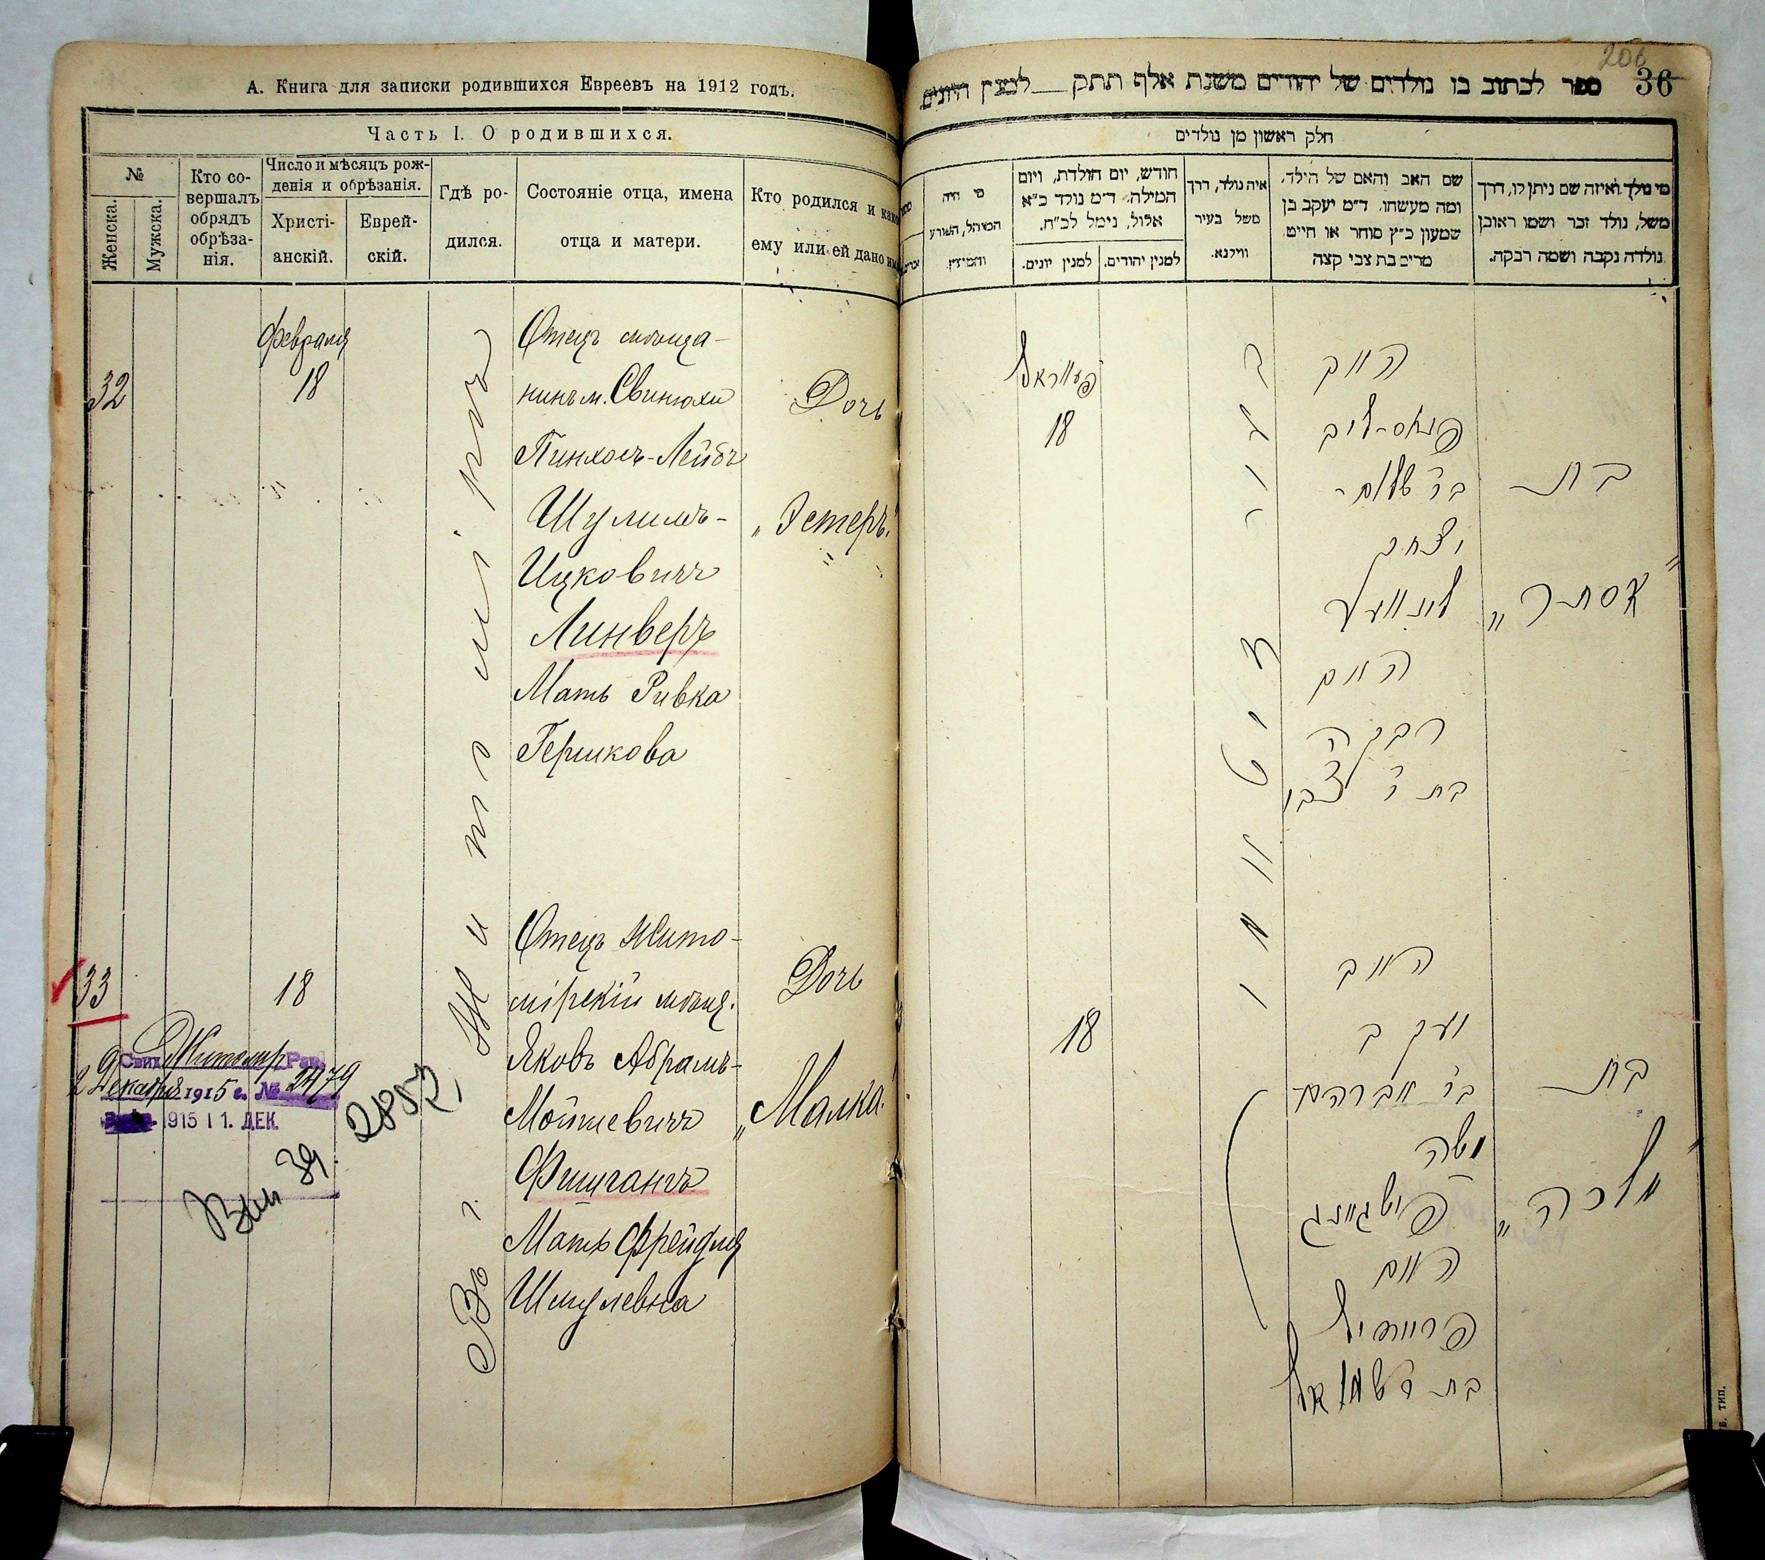 А. Книга для записки родившихся Евреевъ на 1912 годъ.
Часть I. О родившихся.
№
Женска.
Мужска.
Кто со-
вершалъ
обрядъ
обрѣза-
нія.
Число и мѣсяцъ рож-
денія и обрѣзанія.
Христі-
анскій.
Еврей-
скій.
Гдѣ ро-
дился.
Состояніе отца, имена
отца и матери.
Кто родился и како
ему или ей дано им
32
Февраля
18
Въ г. Житомірѣ
Отецъ мѣща-
нинъ м. Свинюхи
Пинхосъ-Лейбъ
Шулимъ-
Ицковичъ
Линверъ
Мать Ривка
Гершкова
Дочь
„Эстеръ"
33
18
Отецъ Жито-
мірскій мѣщ.
Яковъ Абрамъ-
Мошкевичъ
Фишганъ
Мать Фрейдля
Шмулевна
Дочь
„Малка"
Житомир
9 Декабря 1915 г. № 2479
1915 11. ДЕК.
39
206
36
ספר לכתוב בו נולדים של יהודים משנת אלף תתק לכנין היונים
חלק ראשון מן נולדים
מי היה
המוהל, הפורע
והמוצץ
חודש, יום הולדת, ויום
המילה. ד״מ נולד כ״א
אלול, נימל לכ״ח.
למנין יונים.
למנין יהודים.
איה נולד, דרך
משל בעיר
ווילנא.
שם האב והאם של הילד,
ומה מעשהו. ד״מ יעקב בן
שמעון כ״ץ סוחר או חייט
מרים בת צבי קצה
מי נולד ואיזה שם ניתן לו, דרך
משל, נולד זכר ושמו ראובן
נולדה נקבה ושמה רבקה.
פעווראל
18
האב
פנחס-לייב
בר שלום-
יצחק
לינווער
האם
רבקה
בת ר צבי
בת
„אסתר"
18
האב
יעקב
בר אברהם
משה
פישגאנג
האם
פריידיל
בת ר שמואל
בת
„מלכה"